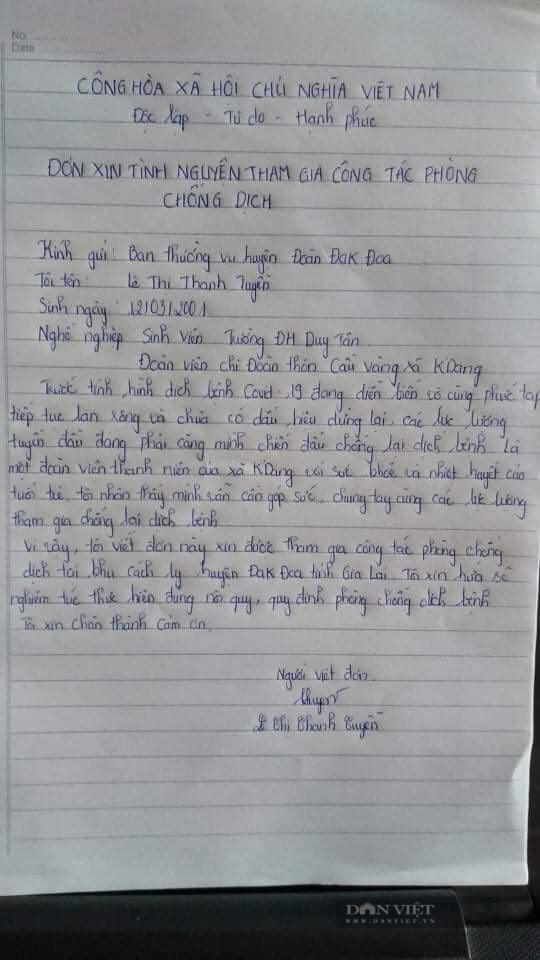 No. ............
Date ....................
CÔNG HÒA XÃ HỘI CHỦ NGHĨA VIỆT NAM
Độc lập - Tự do - Hạnh phúc
ĐƠN XIN TÌNH NGUYỆN THAM GIA CÔNG TÁC PHÒNG
CHỐNG DỊCH
Kính gửi: Ban thường vụ huyện Đoàn Đak Đoa
Tôi tên: Lê Thị Thanh Tuyền
Sinh ngày: 12/03/2001
Nghề nghiệp Sinh viên Trường ĐH Duy Tân.
Đoàn viên chi Đoàn thôn Cầu vàng xã KDang
Trước tình hình dịch bệnh Covid-19 đang diễn biến vô cùng phức tạp
tiếp tục lan rộng và chưa có dấu hiệu dừng lại, các lực lượng
tuyến đầu đang phải căng mình chiến đấu chống lại dịch bệnh. Là
một đoàn viên thanh niên của xã KDang với sức khỏe và nhiệt huyết của
tuổi trẻ, tôi nhận thấy mình cần góp sức, chung tay cùng các lực lượng
tham gia chống lại dịch bệnh
Vì vậy, tôi viết đơn này xin được tham gia công tác phòng chống
dịch tại khu cách ly huyện Đak Đoa tỉnh Gia Lai. Tôi xin hứa sẽ
nghiêm túc thực hiện đúng nội quy, quy định phòng chống dịch bệnh
Tôi xin chân thành cảm ơn.
Người viết đơn.
Lê Thị Thanh Tuyền
DÂN VIỆT
WWW.DANVIET.VN